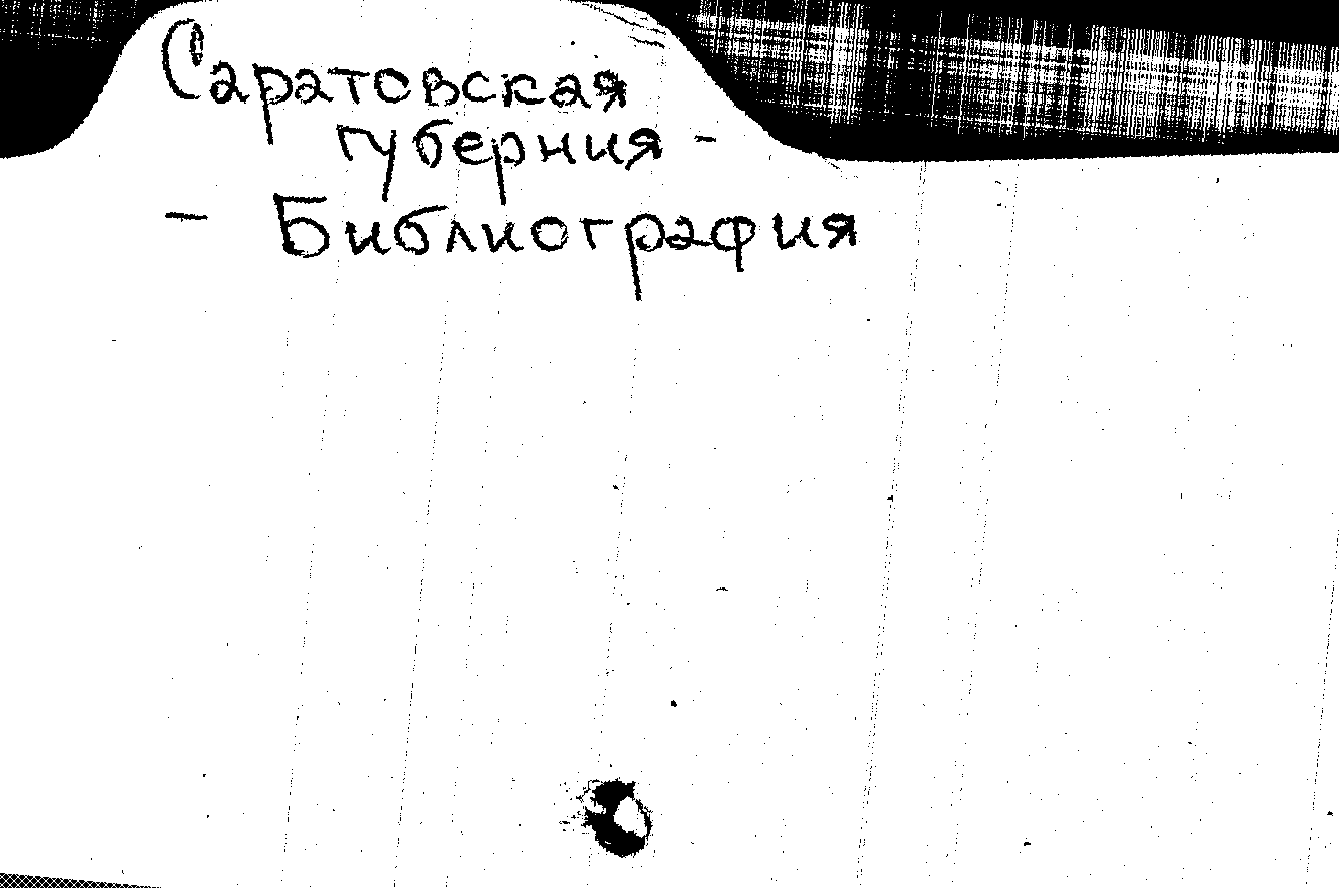 Саратовская
губерния -
- Библиография